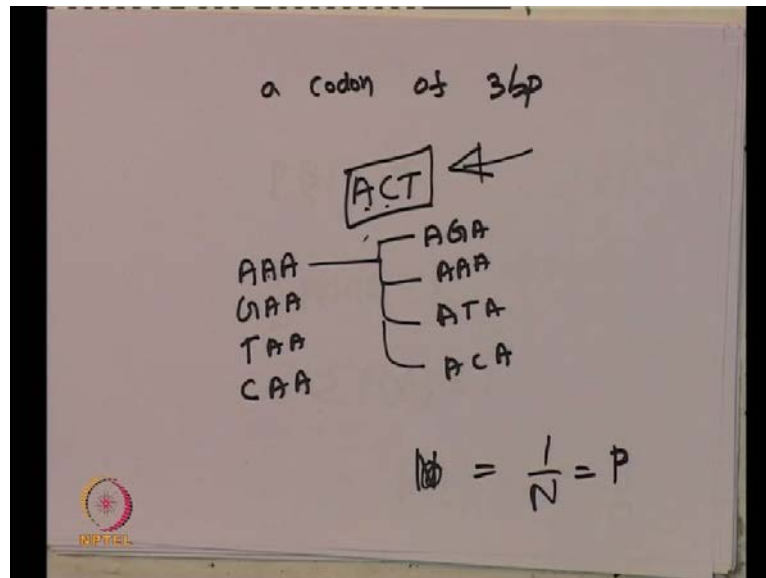 a codon of 3bp
ACT
AAA
GAA
TAA
CAA
AGA
AAA
ATA
ACA
= 1/N = P
NPTEL